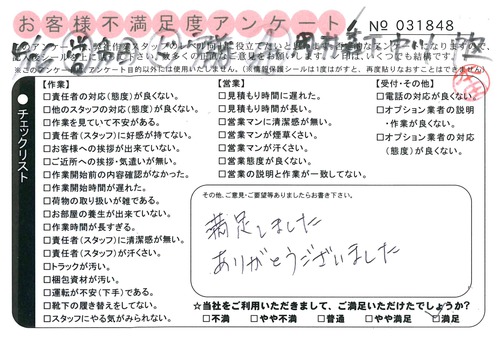 お客様不満足度アンケート
№ 031848
チェックリスト
【作業】
□責任者の対応(態度)が良くない。
□他のスタッフの対応(態度)が良くない。
□作業を見ていて不安がある。
□責任者(スタッフ)に好感が持てない。
□お客様への挨拶が出来ていない。
□ご近所への挨拶・気遣いが無い。
□作業開始前の内容確認がなかった。
□作業開始時間が遅れた。
□荷物の取り扱いが雑である。
□お部屋の養生が出来ていない。
□作業時間が長すぎる。
□責任者(スタッフ)に清潔感が無い。
□責任者(スタッフ)が汗くさい。
□トラックが汚い。
□梱包資材が汚い。
□運転が不安(下手)である。
□靴下の履き替えをしてない。
□スタッフにやる気がみられない。
【営業】
□見積もり時間に遅れた。
□見積もり時間が長い。
□営業マンに清潔感が無い。
□営業マンが煙草くさい。
□営業マンが汗くさい。
□営業態度が良くない。
□営業の説明と作業が一致してない。
【受付・その他】
□電話の対応が良くない。
□オプション業者の説明
・作業が良くない。
□オプション業者の対応
(態度)が良くない。
その他、ご意見・ご要望等ありましたらお書き下さい。
満足しました
ありがとうございました
☆当社をご利用いただきまして、ご満足いただけたでしょうか?
□不満 □やや不満 □普通 □やや満足 □満足